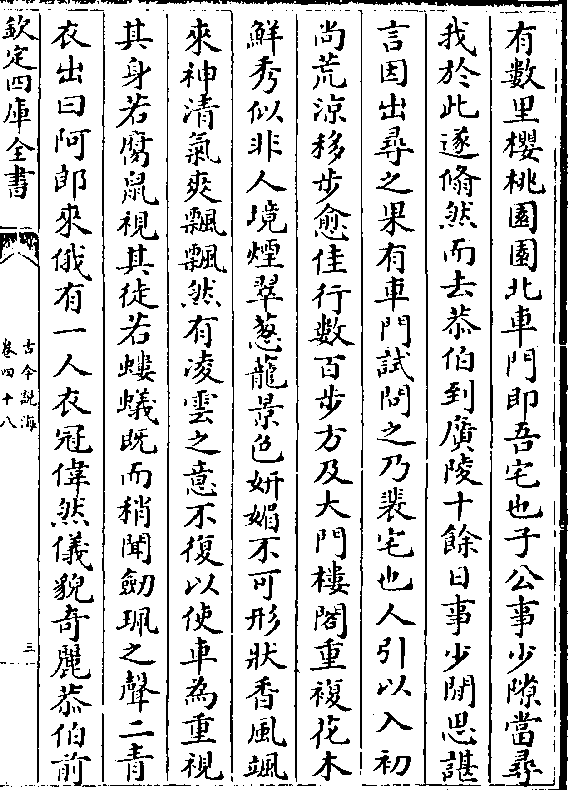 有數里櫻桃園園北車門即吾宅也子公事少隙當尋
我於此遂翛然而去恭伯到廣陵十餘日事少閒思諶
言因出尋之果有車門試問之乃裴宅也人引以入初
尚荒涼移步愈佳行數百步方及大門樓閣重複花木
鮮秀似非人境煙翠葱蘢景色妍媚不可形狀香風颯
來神清氣爽飄飄然有凌雲之意不復以使車為重視
其身若腐鼠視其徒若螻蟻既而稍聞劒珮之聲二青
衣出曰阿郎來俄有一人衣冠偉然儀貌奇麗恭伯前
欽定四庫全書
古今說海
卷四十八
三